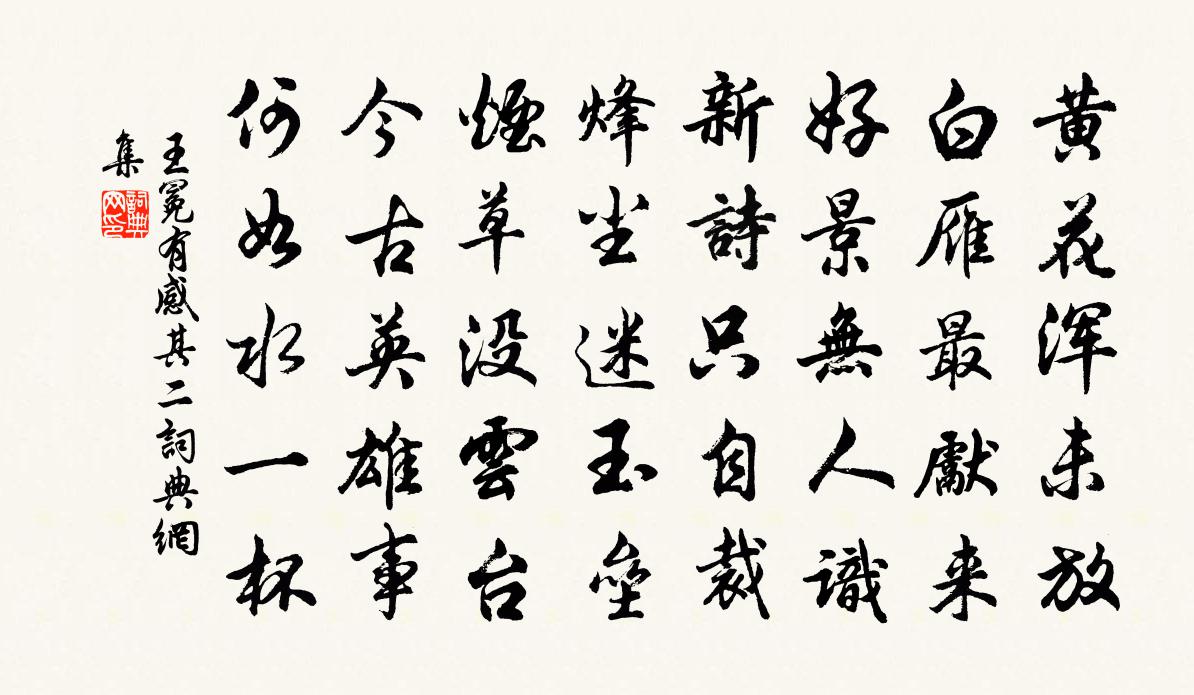 黄花渾未放
白雁最獻来
好景無人識
新詩只自裁
烽尘迷玉壘
煙草没雲台
今古英雄事
何如水一杯
王冕有感其二詞典網
集
詞典
网印